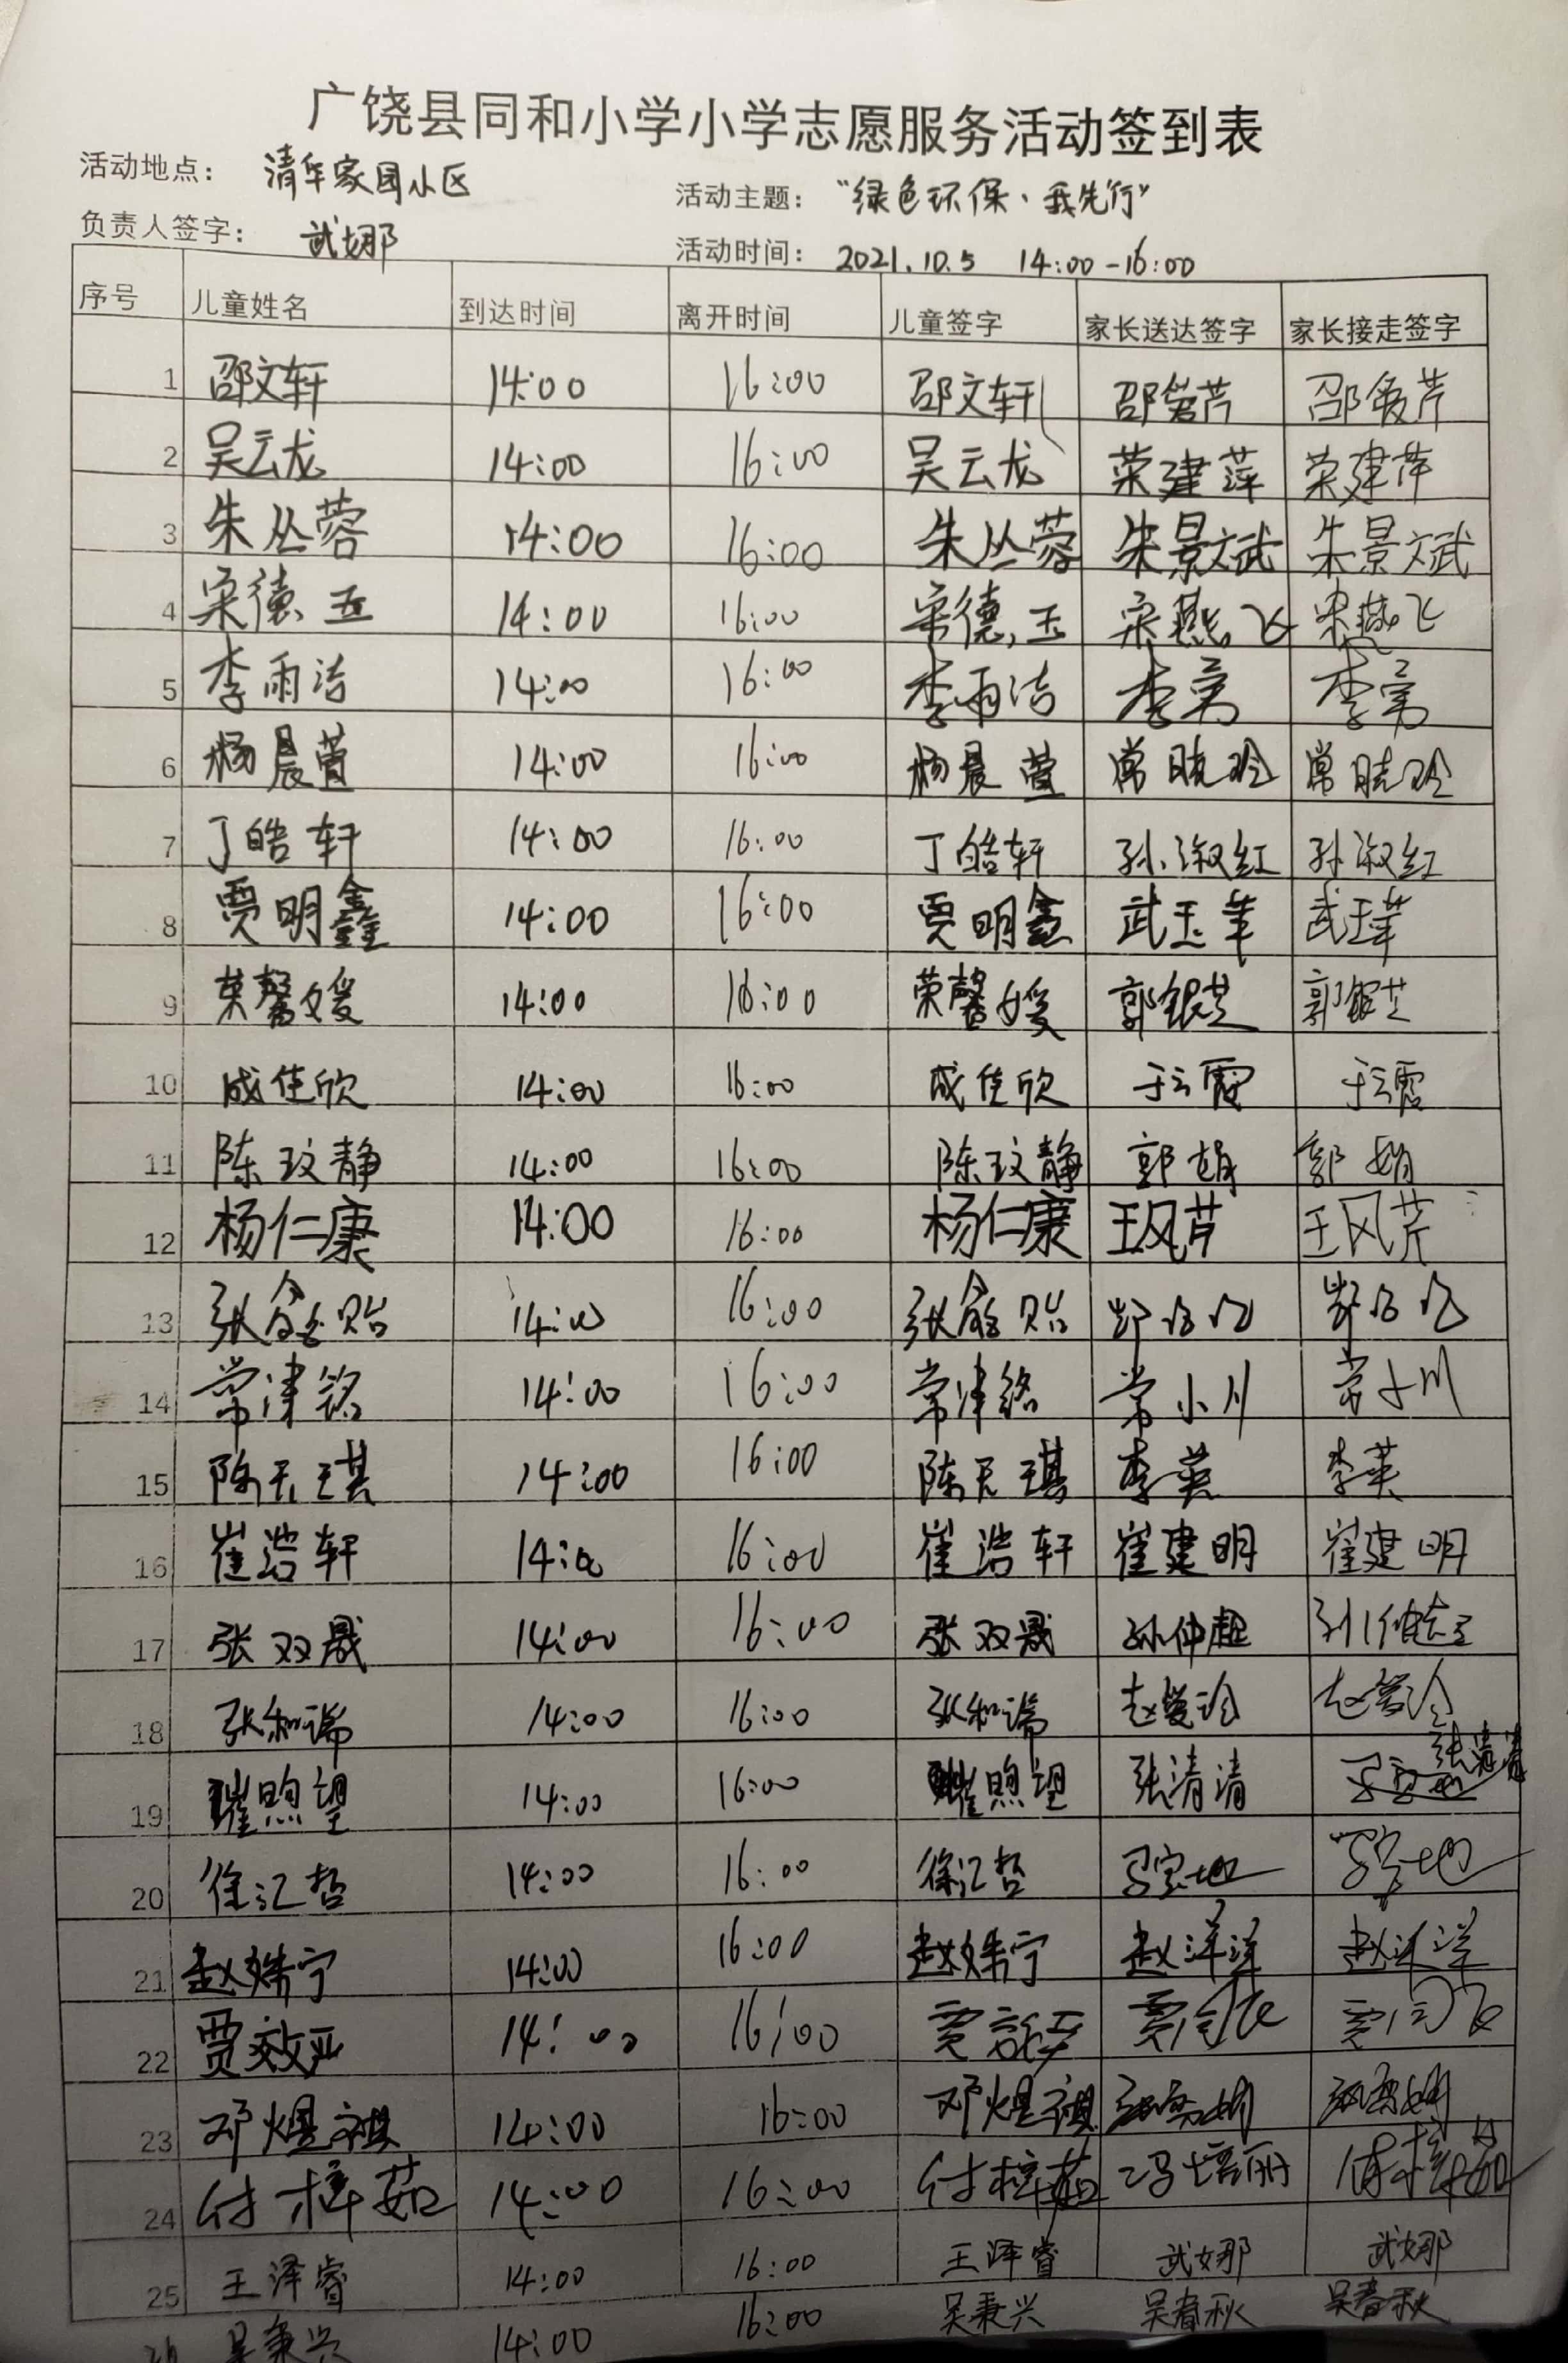 广饶县同和小学小学志愿服务活动签到表
活动地点： 清华家园小区 活动主题： “绿色环保、我先行”
负责人签字： 武娜 活动时间： 2021.10.5 14:00-16:00
序号 儿童姓名 到达时间 离开时间 儿童签字 家长送达签字 家长接走签字
1 邵文轩 14:00 16:00 邵文轩 邵爱芹 邵爱芹
2 吴云龙 14:00 16:00 吴云龙 荣建萍 荣建萍
3 朱丛蓉 14:00 16:00 朱丛蓉 朱景斌 朱景斌
4 宋德玉 14:00 16:00 宋德玉 宋燕飞 宋燕飞
5 李雨洁 14:00 16:00 李雨洁 李
6 杨晨萱 14:00 16:00 杨晨萱 常晓玲 常晓玲
7 丁皓轩 14:00 16:00 丁皓轩 孙淑红 孙淑红
8 贾明鑫 14:00 16:00 贾明鑫 武玉苹 武玉苹
9 荣馨媛 14:00 16:00 荣馨媛 郭银芝 郭银芝
10 成佳欣 14:00 16:00 成佳欣 于云霞 于云霞
11 陈玟静 14:00 16:00 陈玟静 郭娟 郭娟
12 杨仁康 14:00 16:00 杨仁康 王风芹 王风芹
13 张鑫贻 14:00 16:00 张鑫贻
14 常津铭 14:00 16:00 常津铭 常小川 常小川
15 陈天琪 14:00 16:00 陈天琪 李英 李英
16 崔浩轩 14:00 16:00 崔浩轩 崔建明 崔建明
17 张双晟 14:00 16:00 张双晟 孙仲超 孙仲超
18 张和诺 14:00 16:00 张和诺 赵爱玲 赵爱玲
19 璀煦望 14:00 16:00 璀煦望 张清清 张清清
20 徐汇哲 14:00 16:00 徐汇哲
21 赵姝宁 14:00 16:00 赵姝宁 赵洋洋 赵洋洋
22 贾效严 14:00 16:00
23 邓煜祺 14:00 16:00 邓煜祺
24 付梓茹 14:00 16:00 付梓茹 冯培丽 付梓茹
25 王泽睿 14:00 16:00 王泽睿 武娜 武娜
26 吴秉兴 14:00 16:00 吴秉兴 吴春秋 吴春秋